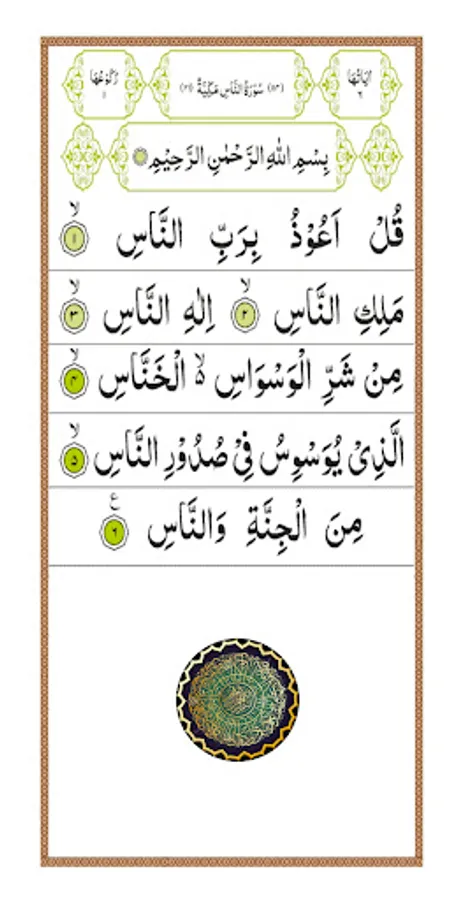 اٰيَاتُهَا ٦ سُوْرَةُ النَّاسِ مَكِّيَّةٌ رُكُوْعُهَا ١
بِسْمِ اللّٰهِ الرَّحْمٰنِ الرَّحِيْمِ
قُلْ اَعُوْذُ بِرَبِّ النَّاسِ ۙ ١
مَلِكِ النَّاسِ ۙ ٢ اِلٰهِ النَّاسِ ۙ ٣
مِنْ شَرِّ الْوَسْوَاسِ ۙ۬ الْخَنَّاسِ ۙ ٤
الَّذِيْ يُوَسْوِسُ فِيْ صُدُوْرِ النَّاسِ ۙ ٥
مِنَ الْجِنَّةِ وَالنَّاسِ ع ٦